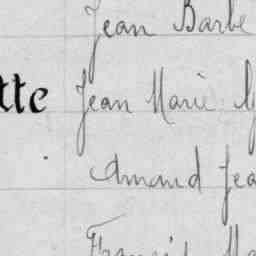 Jean Barbe
tte Jean Marie
Amand Jea
Francis Ma